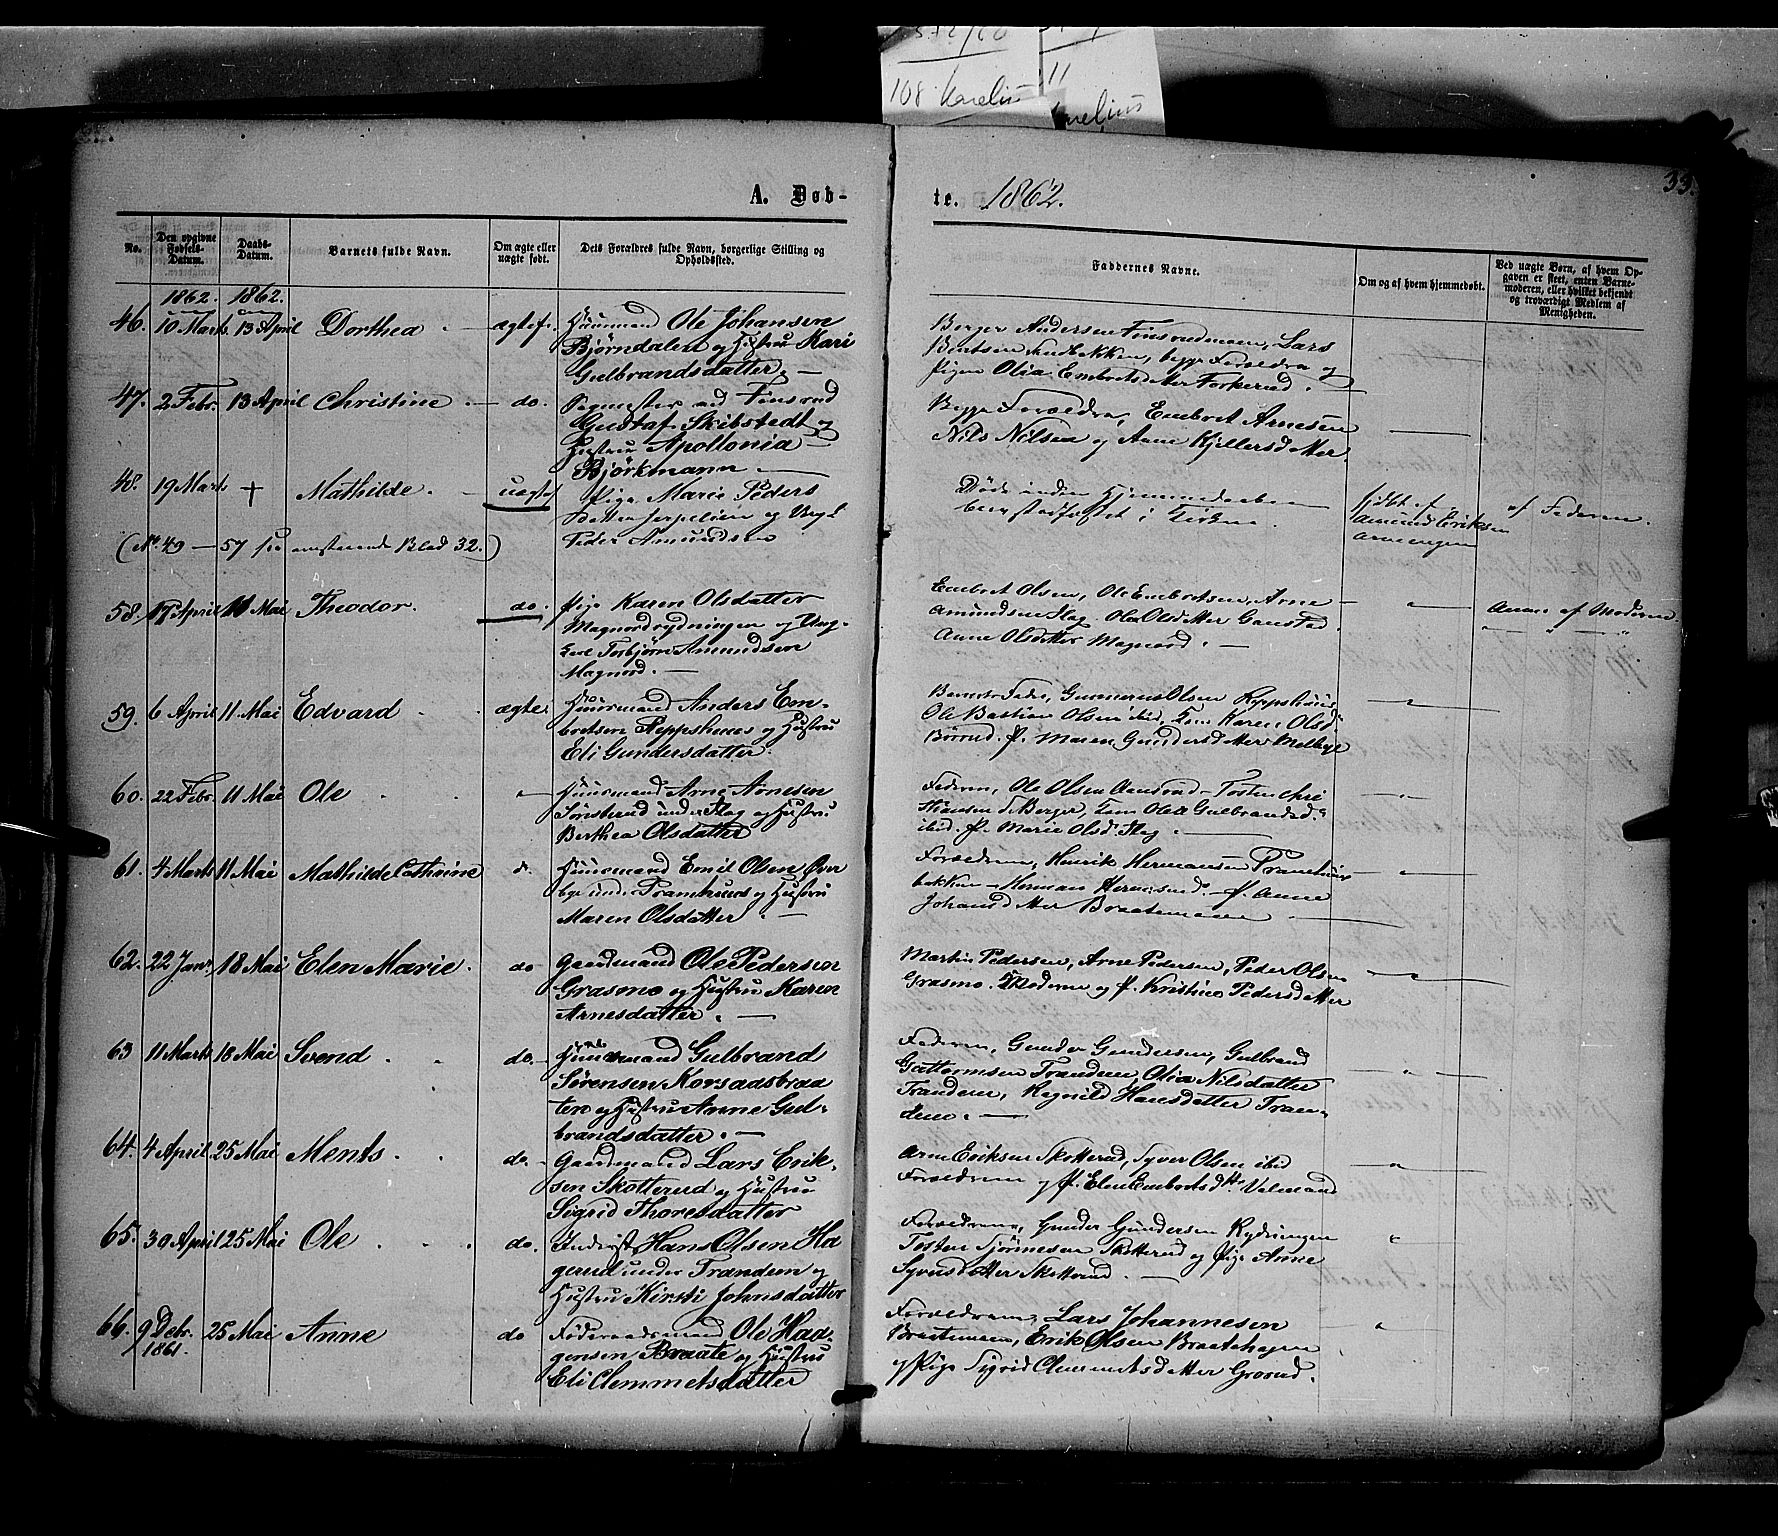 108 Karelius
11
Karelius
33.
A. Døb-
te. 1862.
No.
Den opgivne Fødsels-Datum.
Daabs-Datum.
Barnets fulde Navn.
Om ægte eller uægte født.
Dets Forældres fulde Navn, borgerlige Stilling og Opholdssted.
Faddernes Navne.
Om og af hvem hjemmedøbt.
Ved uægte Børn, af hvem Opgaven er skeet, enten Barnemoderen, eller hvilket bekjendt og troværdigt Medlem af Menigheden.
1862. 1862.
46. 10 Marts 13 April Dorthea ægtef. Huusmand Ole Johansen
Bjørndalen og Hustru Kari
Gulbrandsdatter.
Berger Andersen Finsrudmoen, Lars
Berntsen, begge Forældre og
Pigen Olia Embretsdatter Torkerud.
47. 2 Febr. 13 April Christine do. Sagmester ved Finsrud
Gustaf Skibstedt og
Hustru Apollonia
Björkmann
Begge Forældre, Embret Arnesen
Nils Nilsen og Anne Kjellersdatter
48. 19 Marts † Mathilde. uægte Pige Marie Peders
Datter og Ungk.
Peder Amundsen
Døde inden Hjemmedaaben
bev stadfæstet i Kirken.
hjdbt af
Amund Eriksen
af Faderen.
(No. 49 — 57 see omstaaende Blad 32.)
58. 17 April 11 Mai Theodor. do. Pige Karen Olsdatter
Magnordrydningen og Ung-
karl Torbjørn Amundsen
Magnord.
Embret Olsen, Ole Embretsen, Arne
Amundsen Hag, Olea Olsdatter Gaustad
Anne Olsdatter Magnord.
af Moderen
59. 6 April 11 Mai Edvard ægte. Huusmand Anders Em-
bretsen Reppshuus og Hustru
Eli Gundersdatter.
Barnets Fader, Gunnerus Olsen Reppshuus
Ole Bastian Olsen ibid, Kone Karen Olsd
Børrud. P. Maren Gundersdatter Melbye
60. 22 Febr. 11 Mai Ole Huusmand Arne Arnesen
Sønsterud under Hag og Hustru
Berthea Olsdatter
Faderen, Ole Olsen Aandrud, Tosten Chri
stiansen Berger, Kone Olea Gulbrandsd.
ibid. P. Marie Olsd Hag.
61. 4 Marts 11 Mai Mathilde Cathrine d. Huusmand Emil Olsen Øver
bye under Tramhuus og Hustru
Maren Olsdatter.
Forældrene, Henrik Hermansen
bekken - Herman P. Anne
Johansdatter Braatemoen
62. 22 Janr. 18 Mai Elen Marie. do Gaardmand Ole Pedersen
Grasmo og Hustru Karen
Arnesdatter.
Martin Pedersen, Arne Pedersen, Peder Olsen
Grasmo. Moderen og P. Kristine Pedersdatter
63 11 Marts 18 Mai Svend. do. Huusmand Gulbrand
Sørensen Korsadsbraa
ten og Hustru Anne Gul-
brandsdatter.
Faderen, Gunder Gundersen, Gulbrand
Guttormsen Trandem, Olia Nilsdatter
Trandem, Ragnild Hansdatter Tran-
dem.
64. 4 April 25 Mai Ments do. Gaardmand Lars Erik-
sen Skotterud og Hustru
Sigrid Thoresdatter
Arne Eriksen Skotterud, Syver Olsen ibid
Forældrene og P. Elen Embretsdtr
65. 30 April 25 Mai Ole do. Inderst Hans Olsen Ha
gerud under Trandem og
Hustru Kirsti Johnsdatter
Forældrene, Gunder Gundersen Rydningen
Tosten Skotterud og Pige Anne
Syversdatter Skotterud.
66. 9 Debr. 1861. 25 Mai Anne do Føderaadsmand Ole Haa-
gensen Braate og Hustru
Eli Clemmetsdatter
Forældrene, Lars Johannesen
Braatemoen, Erik Olsen Braatehagen
og Pige Sigrid Clemmetsdatter Grorud.